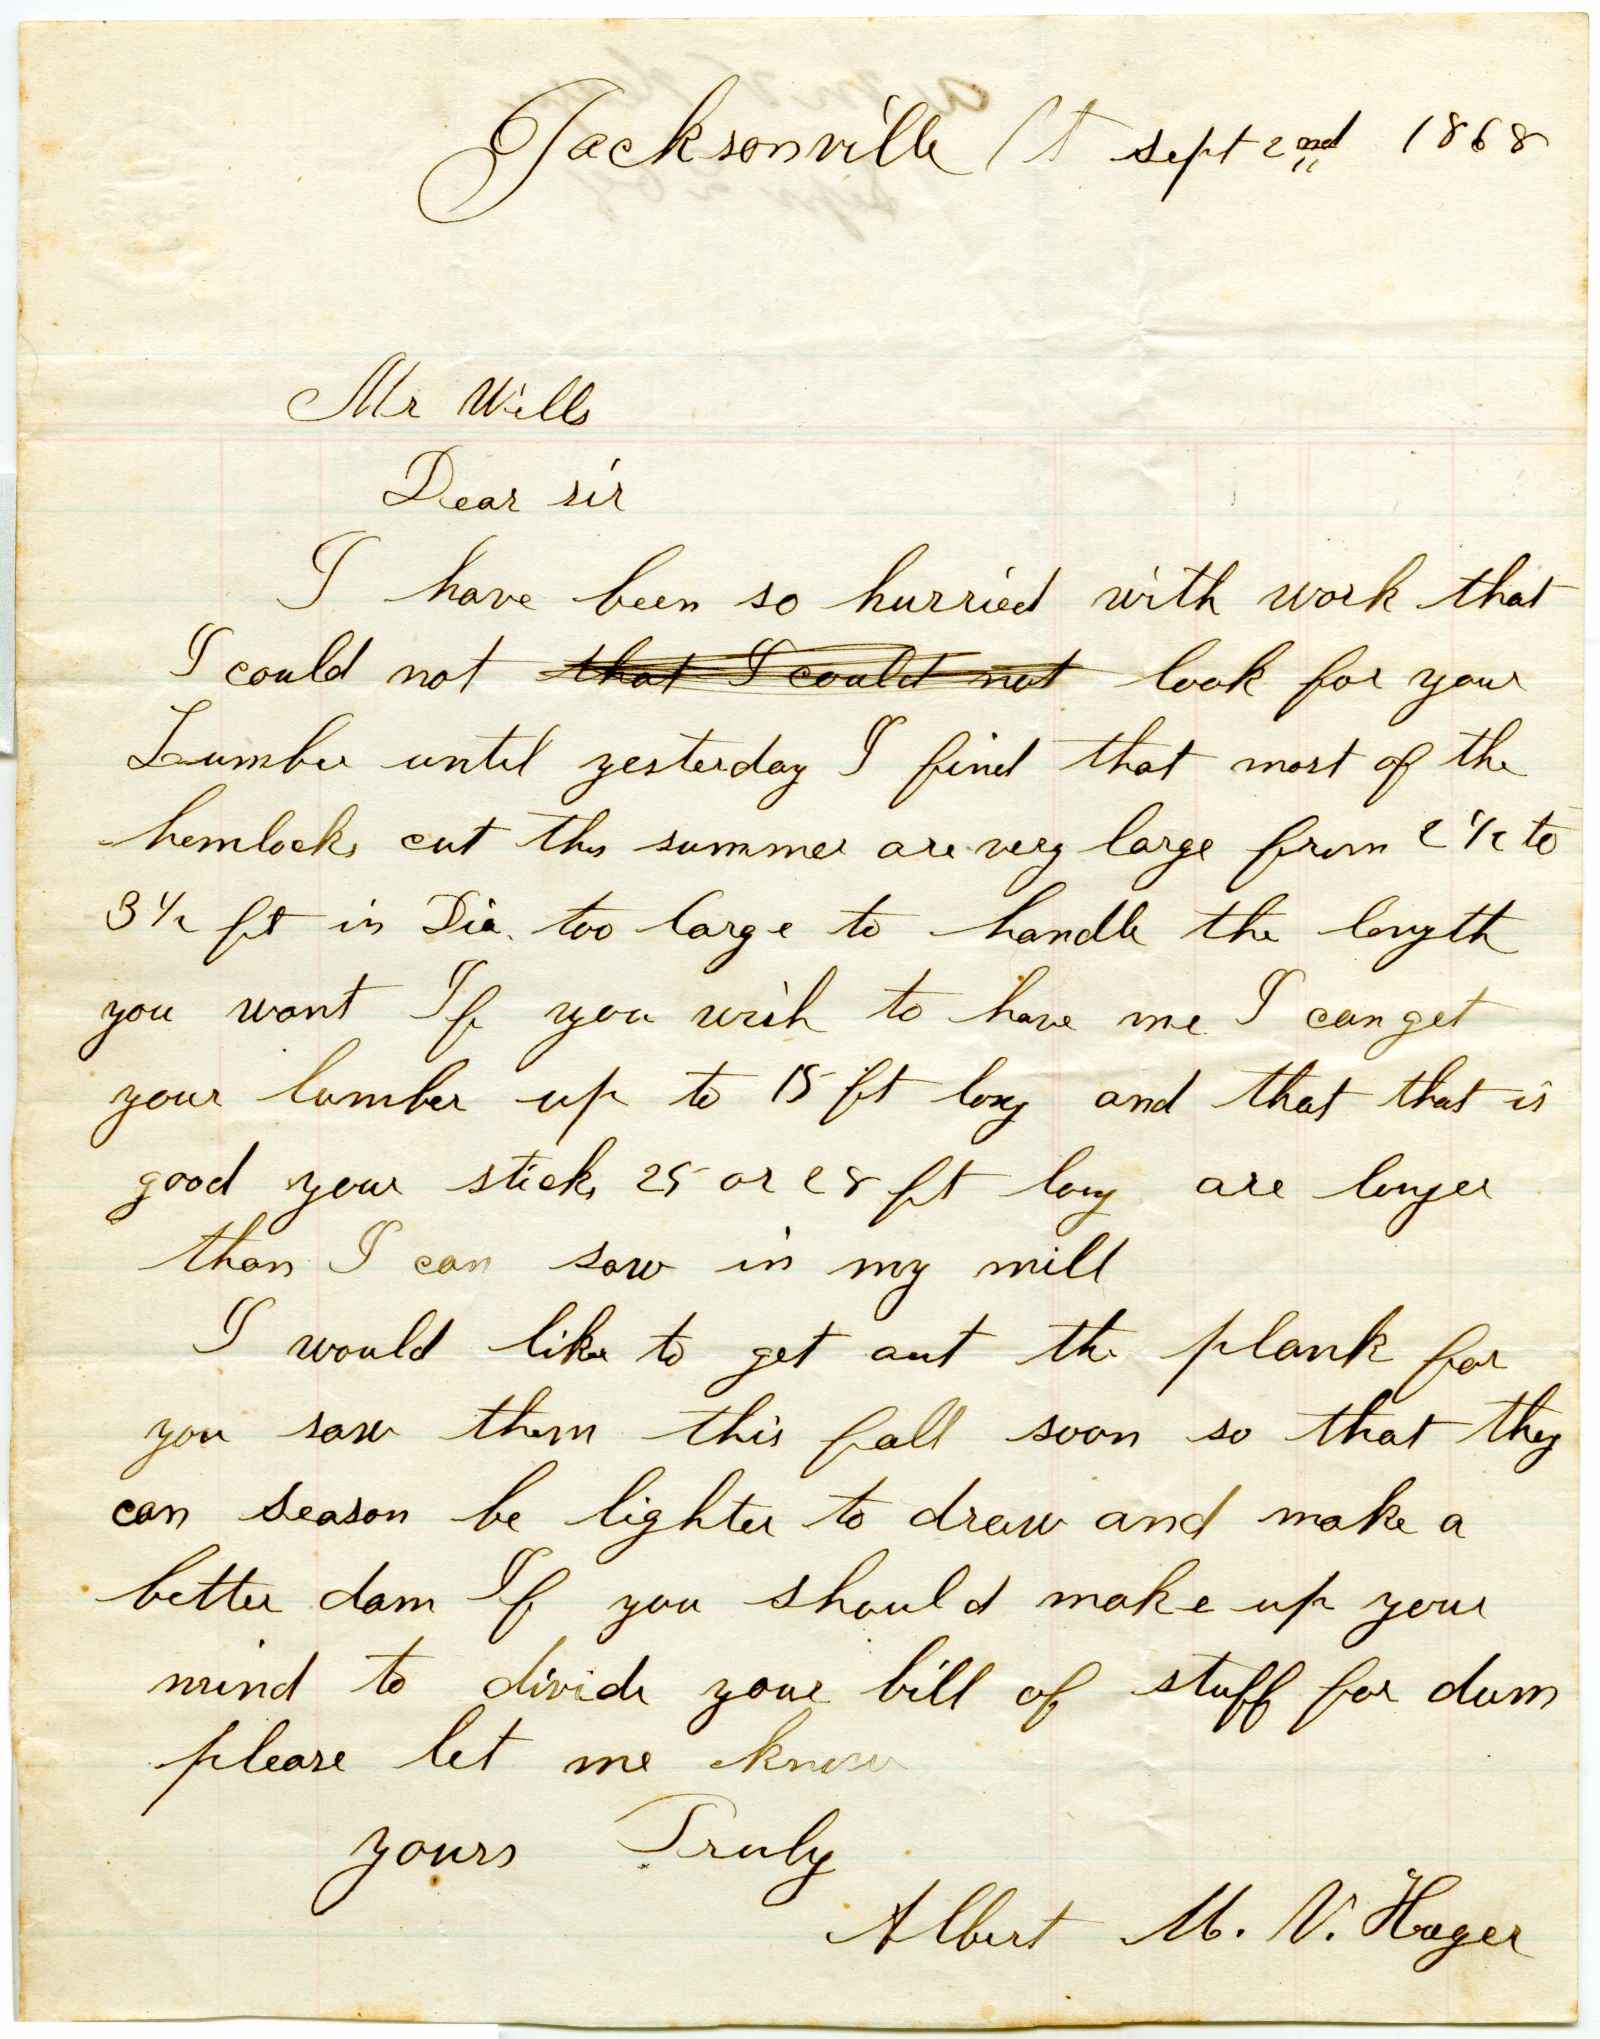 Jacksonville Vt sept 2nd 1868
Mr Wills
Dear sir
I have been so hurried with work that
I could not that I could not look for your
Lumber until yesterday I find that most of the
hemlocks cut this summer are very large from 2 1/2 to
3 1/2 ft in Dia. too large to handle the length
you want If you wish to have me I can get
your lumber up to 15 ft long and that that is
good your sticks 25 or 28 ft long are longer
than I can saw in my mill
I would like to get out the plank for
you saw them this fall soon so that they
can season be lighter to draw and make a
better dam If you should make up your
mind to divide your bill of stuff for dam
please let me know
yours Truly
Albert M. V. Hager